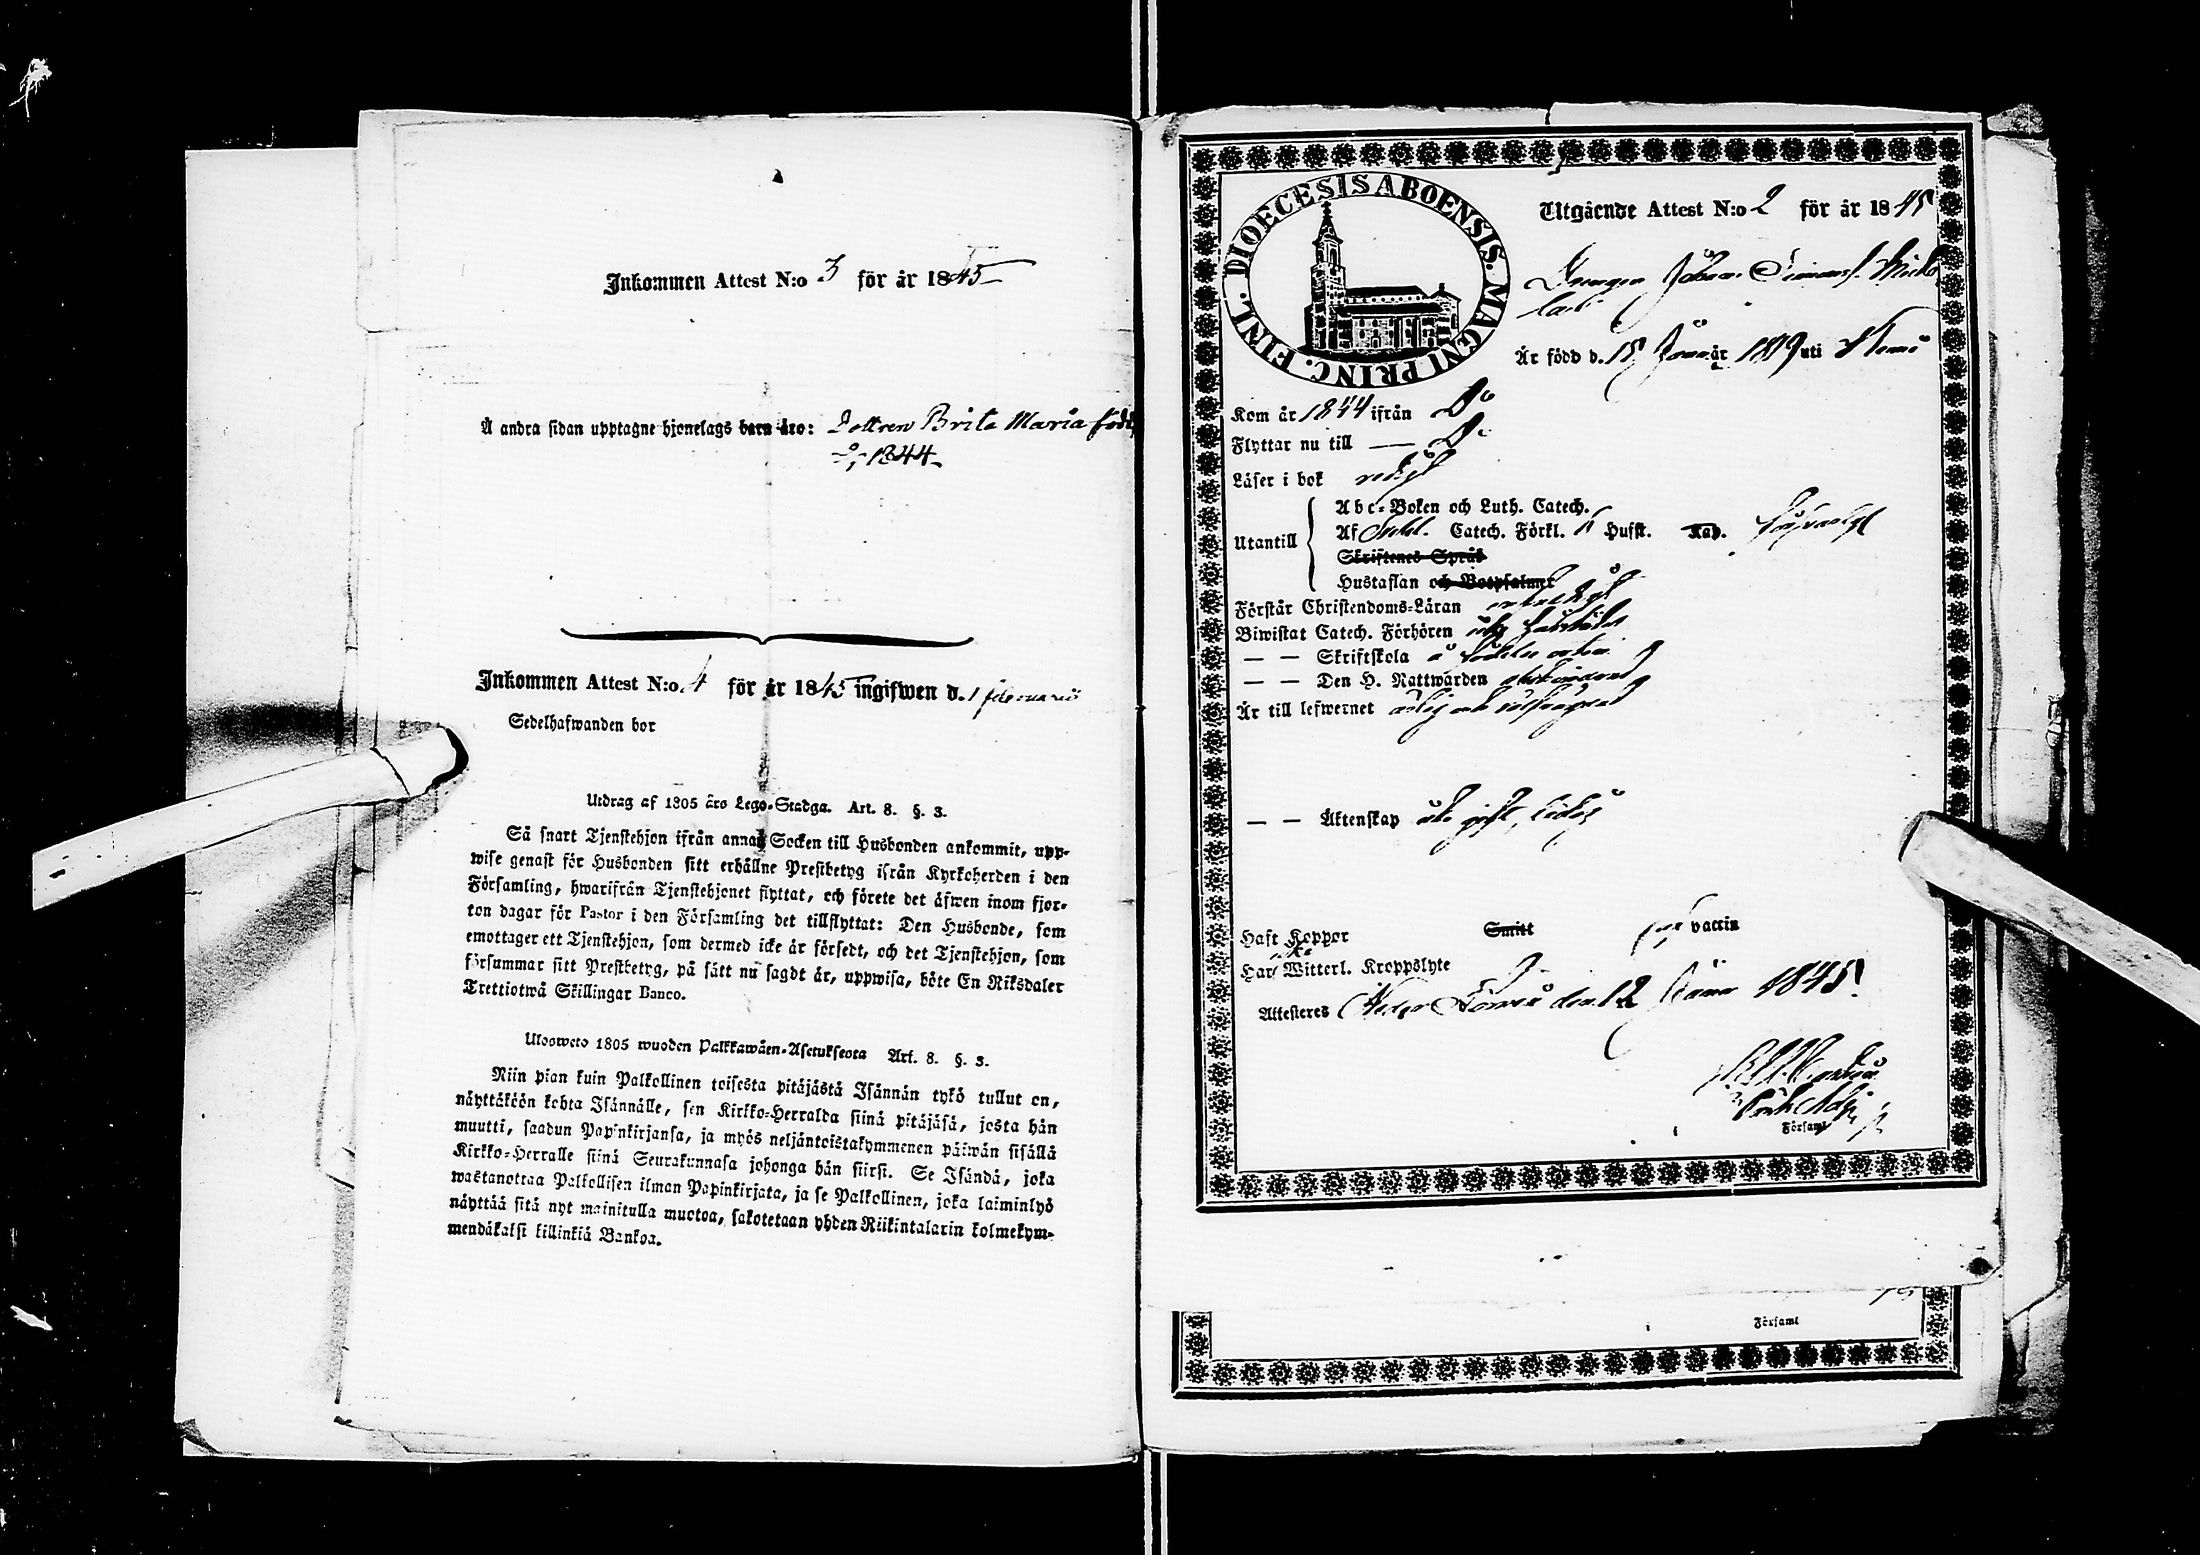 Inkommen Attest N:o 3 för år 1845
Å andra sidan upptagne hjonelags barn äro: Dottren Brita Maria född
1844
Inkommen Attest N:o 4 för år 1845 ingifwen d. 1 februarii
Sedelhafwanden bor
Utdrag af 1805 års Lego-Stadga. Art. 8. §. 3.
Så snart Tjenstehjon ifrån annan Socken till Husbonden ankommit, upp-
wise genast för Husbonden sitt erhållne Prestbetyg ifrån Kyrkoherden i den
Församling, hwarifrån Tjenstehjonet flyttat, och förete det äfwen inom fjor-
ton dagar för Pastor i den Församling det tillflyttat: Den Husbonde, som
emottager ett Tjenstehjon, som dermed icke är försedt, och det Tjenstehjon, som
försummar sitt Prestbetyg, på sätt nu sagdt är, uppwisa, böte En Riksdaler
Trettiotwå Skillingar Banco.
Ulosweto 1805 wuoden Palkkawäen-Asetuksesta Art. 8. §. 3.
Niin pian kuin Palkollinen toisesta pitäjästä Isännän tykö tullut on,
näyttäköön kohta Isännälle, sen Kirkko-Herralda siinä pitäjäsä, josta hän
muutti, saadun Papinkirjansa, ja myös neljäntoistakymmenen päiwän sisällä
Kirkko-Herralle siinä Seurakunnasa johonga hän siirsi. Se Isändä, joka
wastanottaa Palkollisen ilman Papinkirjata, ja se Palkollinen, joka laiminlyö
näyttää sitä nyt mainitulla muotoa, sakotetaan yhden Riikintalarin kolmekym-
mendäkaksi killinkiä Bankoa.
DIOECESIS ABOENSIS. MAGNI PRINC. FINL.
Utgående Attest N:o 2 för år 1845
Drengen Johan Simonss.
Är född d. 15 Januar 1819 uti Kemi
Kom år 1844 ifrån Do
Flyttar nu till — Do
Läser i bok
Utantill
Abc-Boken och Luth. Catech.
Af Catech. Förkl. Hufst. Kap. försvarligt
Skriftenes Språk
Hustaflan och Botpsalmer
Förstår Christendoms-Läran
Biwistat Catech. Förhören
— — Skriftskola
— — Den H. Nattwarden
Är till lefwernet ärlig och
— — Äktenskap gift, ledig
Haft Koppor Smitt vaccin
Har icke Witterl. Kroppslyte
Attesteres Neder Torneå den 12 Januar 1845.
Församl
Församl